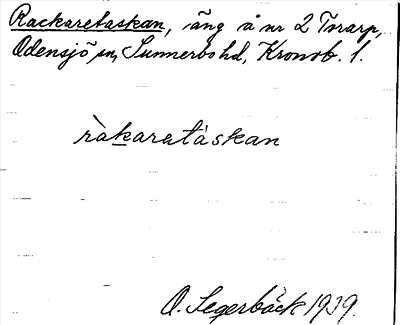 Rackaretaskan, äng å nr 2 Tvarp,
Odensjö sn, Sunnerbo hd, Kronob. l.
ràkaretáskan
O. Segerbäck 1939.